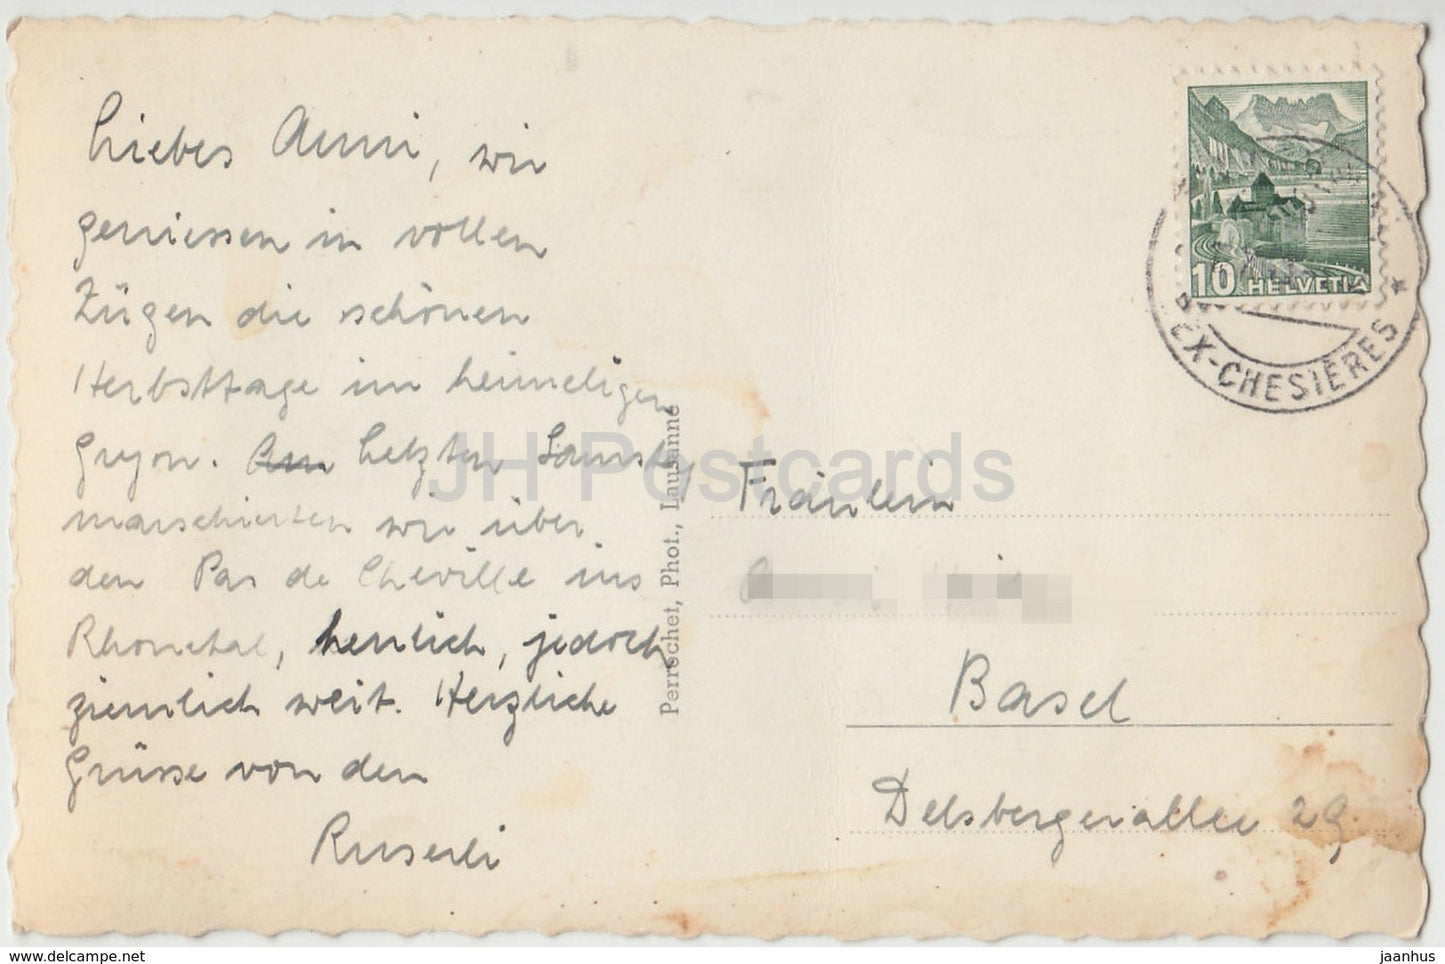 Liebes Anni, wir
geniessen in vollen
Zügen die schönen
Herbsttage im heimeligen
Gryon. Am Letzten Samstag
marschierten wir über
den Pas de Cheville ins
Rhonetal, herrlich, jedoch
ziemlich weit. Herzliche
Grüsse von den
Perrochet, Phot., Lausanne
10 HELVETIA
EX-CHESIÈRES *
Fräulein
Basel
Delsbergerallee 29
JH Postcards
www.hippostcard.com
jaanhus